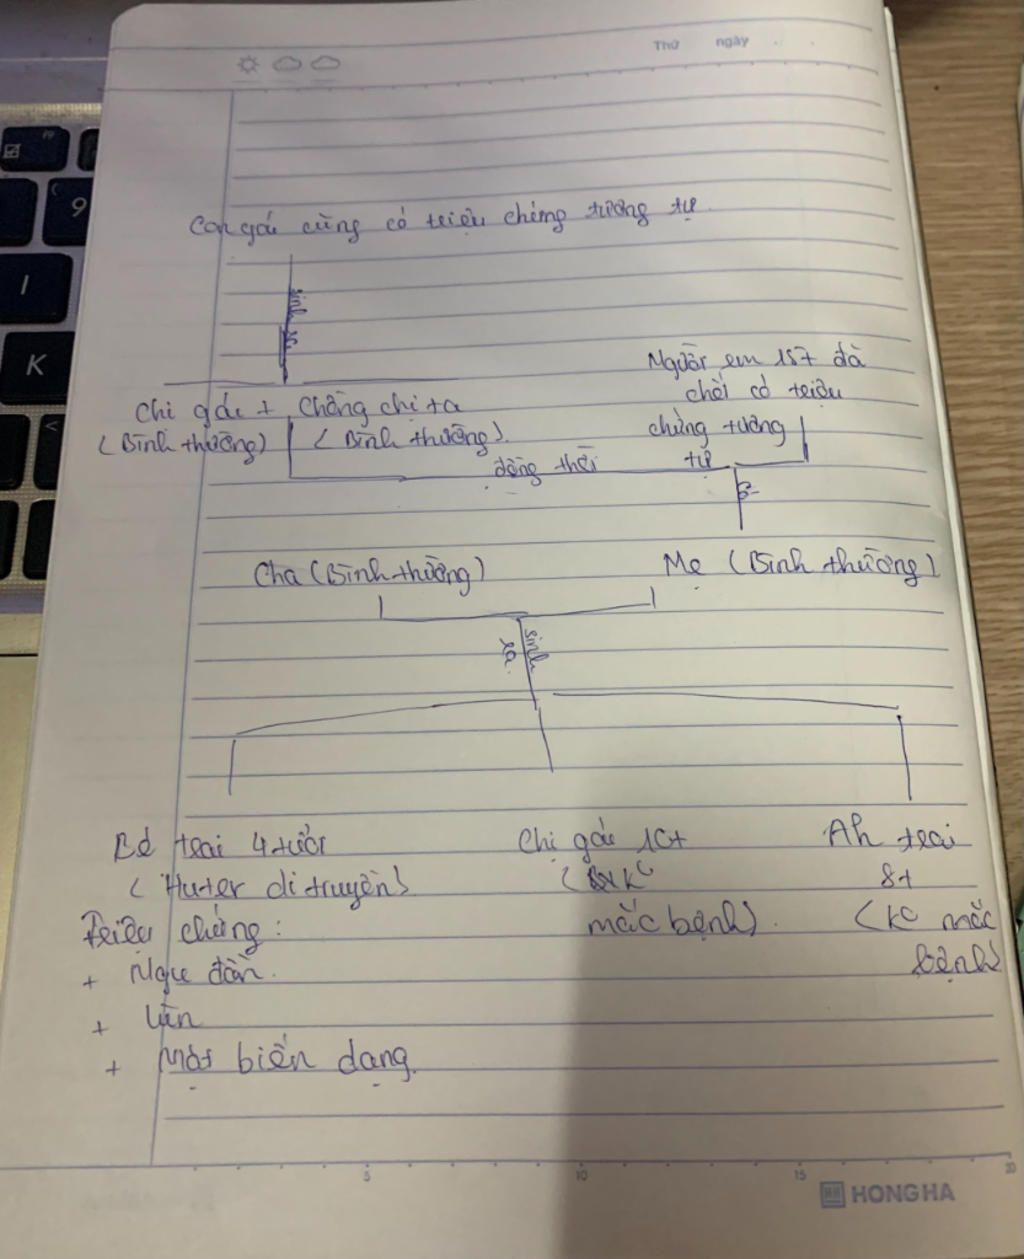 Thứ ngày
Con gái cũng có triệu chứng tương tự
sinh ra
Người em 15t đã
chết có triệu
chứng tương
tự
Chị gái + Chồng chị ta
(Bình thường) (Bình thường)
đồng thời
có
Cha (Bình thường) Mẹ (Bình thường)
sinh
ra
Bé trai 4 tuổi
(Hunter di truyền)
Chị gái 10t
mắc bệnh)
Ah trai
8t
(KC mắc
bệnh)
Triệu chứng:
+ Ngu đần
+ Lùn
+ Mặt biến dạng.
5 10 15 20
HH HONG HA
9
I
K